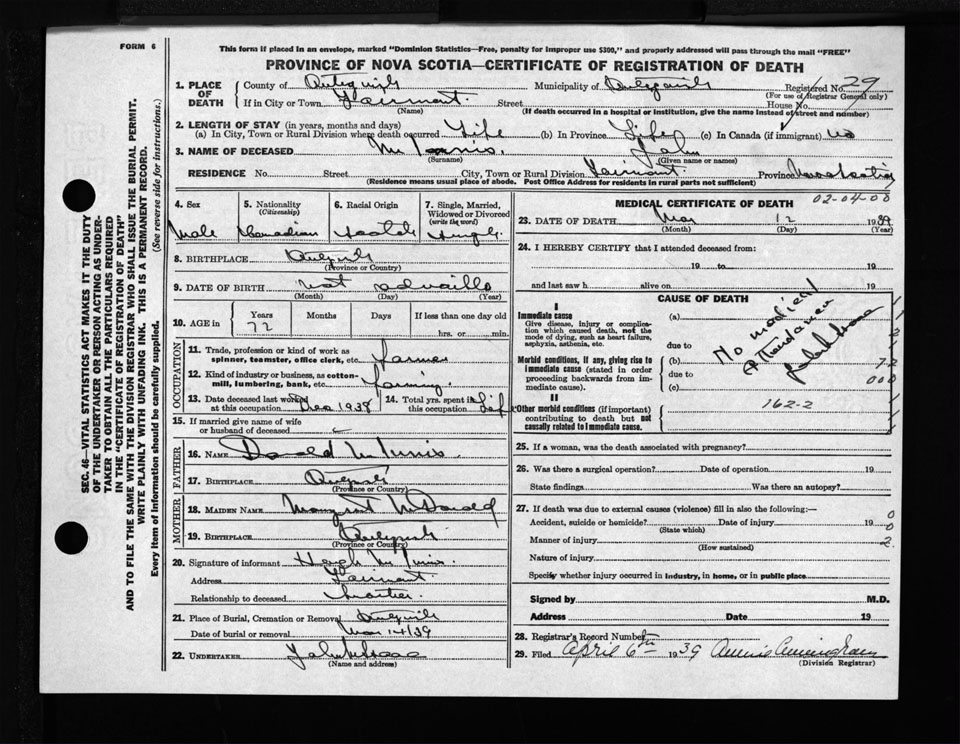 FORM 6
This form if placed in an envelope, marked "Dominion Statistics—Free, penalty for improper use $300," and properly addressed will pass through the mail "FREE"
PROVINCE OF NOVA SCOTIA—CERTIFICATE OF REGISTRATION OF DEATH
1. PLACE OF DEATH County of Municipality of Registered No. 29
(For use of Registrar General only)
If in City or Town Fairmont. Street House No.
(Name) (If death occurred in a hospital or institution, give the name instead of street and number)
2. LENGTH OF STAY (in years, months and days)
(a) In City, Town or Rural Division where death occurred Life (b) In Province Life (c) In Canada (if immigrant) no
3. NAME OF DECEASED McInnis. John
(Surname) (Given name or names)
RESIDENCE No. Street City, Town or Rural Division Fairmont. Province Nova Scotia
(Residence means usual place of abode. Post Office Address for residents in rural parts not sufficient)
4. Sex 5. Nationality (Citizenship) 6. Racial Origin 7. Single, Married, Widowed or Divorced (write the word)
Male Canadian Scotch Single
8. BIRTHPLACE
(Province or Country)
9. DATE OF BIRTH not
(Month) (Day) (Year)
10. AGE in Years Months Days If less than one day old
72 hrs. or min.
OCCUPATION
11. Trade, profession or kind of work as spinner, teamster, office clerk, etc. Farmer
12. Kind of industry or business, as cotton-mill, lumbering, bank, etc. Farming
13. Date deceased last worked at this occupation Dec 1938 14. Total yrs. spent in this occupation Life
15. If married give name of wife or husband of deceased
FATHER
16. NAME Donald McInnis
17. BIRTHPLACE
(Province or Country)
MOTHER
18. MAIDEN NAME Margaret McDonald
19. BIRTHPLACE
(Province or Country)
20. Signature of informant Hugh McInnis.
Address Fairmont.
Relationship to deceased brother
21. Place of Burial, Cremation or Removal
Date of burial or removal Mar 14/39
22. UNDERTAKER John
(Name and address)
MEDICAL CERTIFICATE OF DEATH 02-04-00
23. DATE OF DEATH Mar 12 1939
(Month) (Day) (Year)
24. I HEREBY CERTIFY that I attended deceased from:
19 to 19
and last saw h alive on 19
CAUSE OF DEATH
I
Immediate cause
Give disease, injury or complication which caused death, not the mode of dying, such as heart failure, asphyxia, asthenia, etc.
(a) No medical attendance
due to
Morbid conditions, if any, giving rise to immediate cause (stated in order proceeding backwards from immediate cause).
(b) 72
due to 000
(c)
II
Other morbid conditions (if important) contributing to death but not causally related to immediate cause.
162-2
25. If a woman, was the death associated with pregnancy?
26. Was there a surgical operation? Date of operation 19
State findings Was there an autopsy?
27. If death was due to external causes (violence) fill in also the following:—
Accident, suicide or homicide? Date of injury 19 0
(State which) 0
Manner of injury 2
(How sustained)
Nature of injury
Specify whether injury occurred in industry, in home, or in public place
Signed by M.D.
Address Date 19
28. Registrar's Record Number
29. Filed April 6th 1939 Annie Cunningham
(Division Registrar)
SEC. 46—VITAL STATISTICS ACT MAKES IT THE DUTY
OF THE UNDERTAKER OR PERSON ACTING AS UNDER-
TAKER TO OBTAIN ALL THE PARTICULARS REQUIRED
IN THE "CERTIFICATE OF REGISTRATION OF DEATH"
AND TO FILE THE SAME WITH THE DIVISION REGISTRAR WHO SHALL ISSUE THE BURIAL PERMIT.
WRITE PLAINLY WITH UNFADING INK. THIS IS A PERMANENT RECORD.
Every item of information should be carefully supplied. (See reverse side for instructions.)